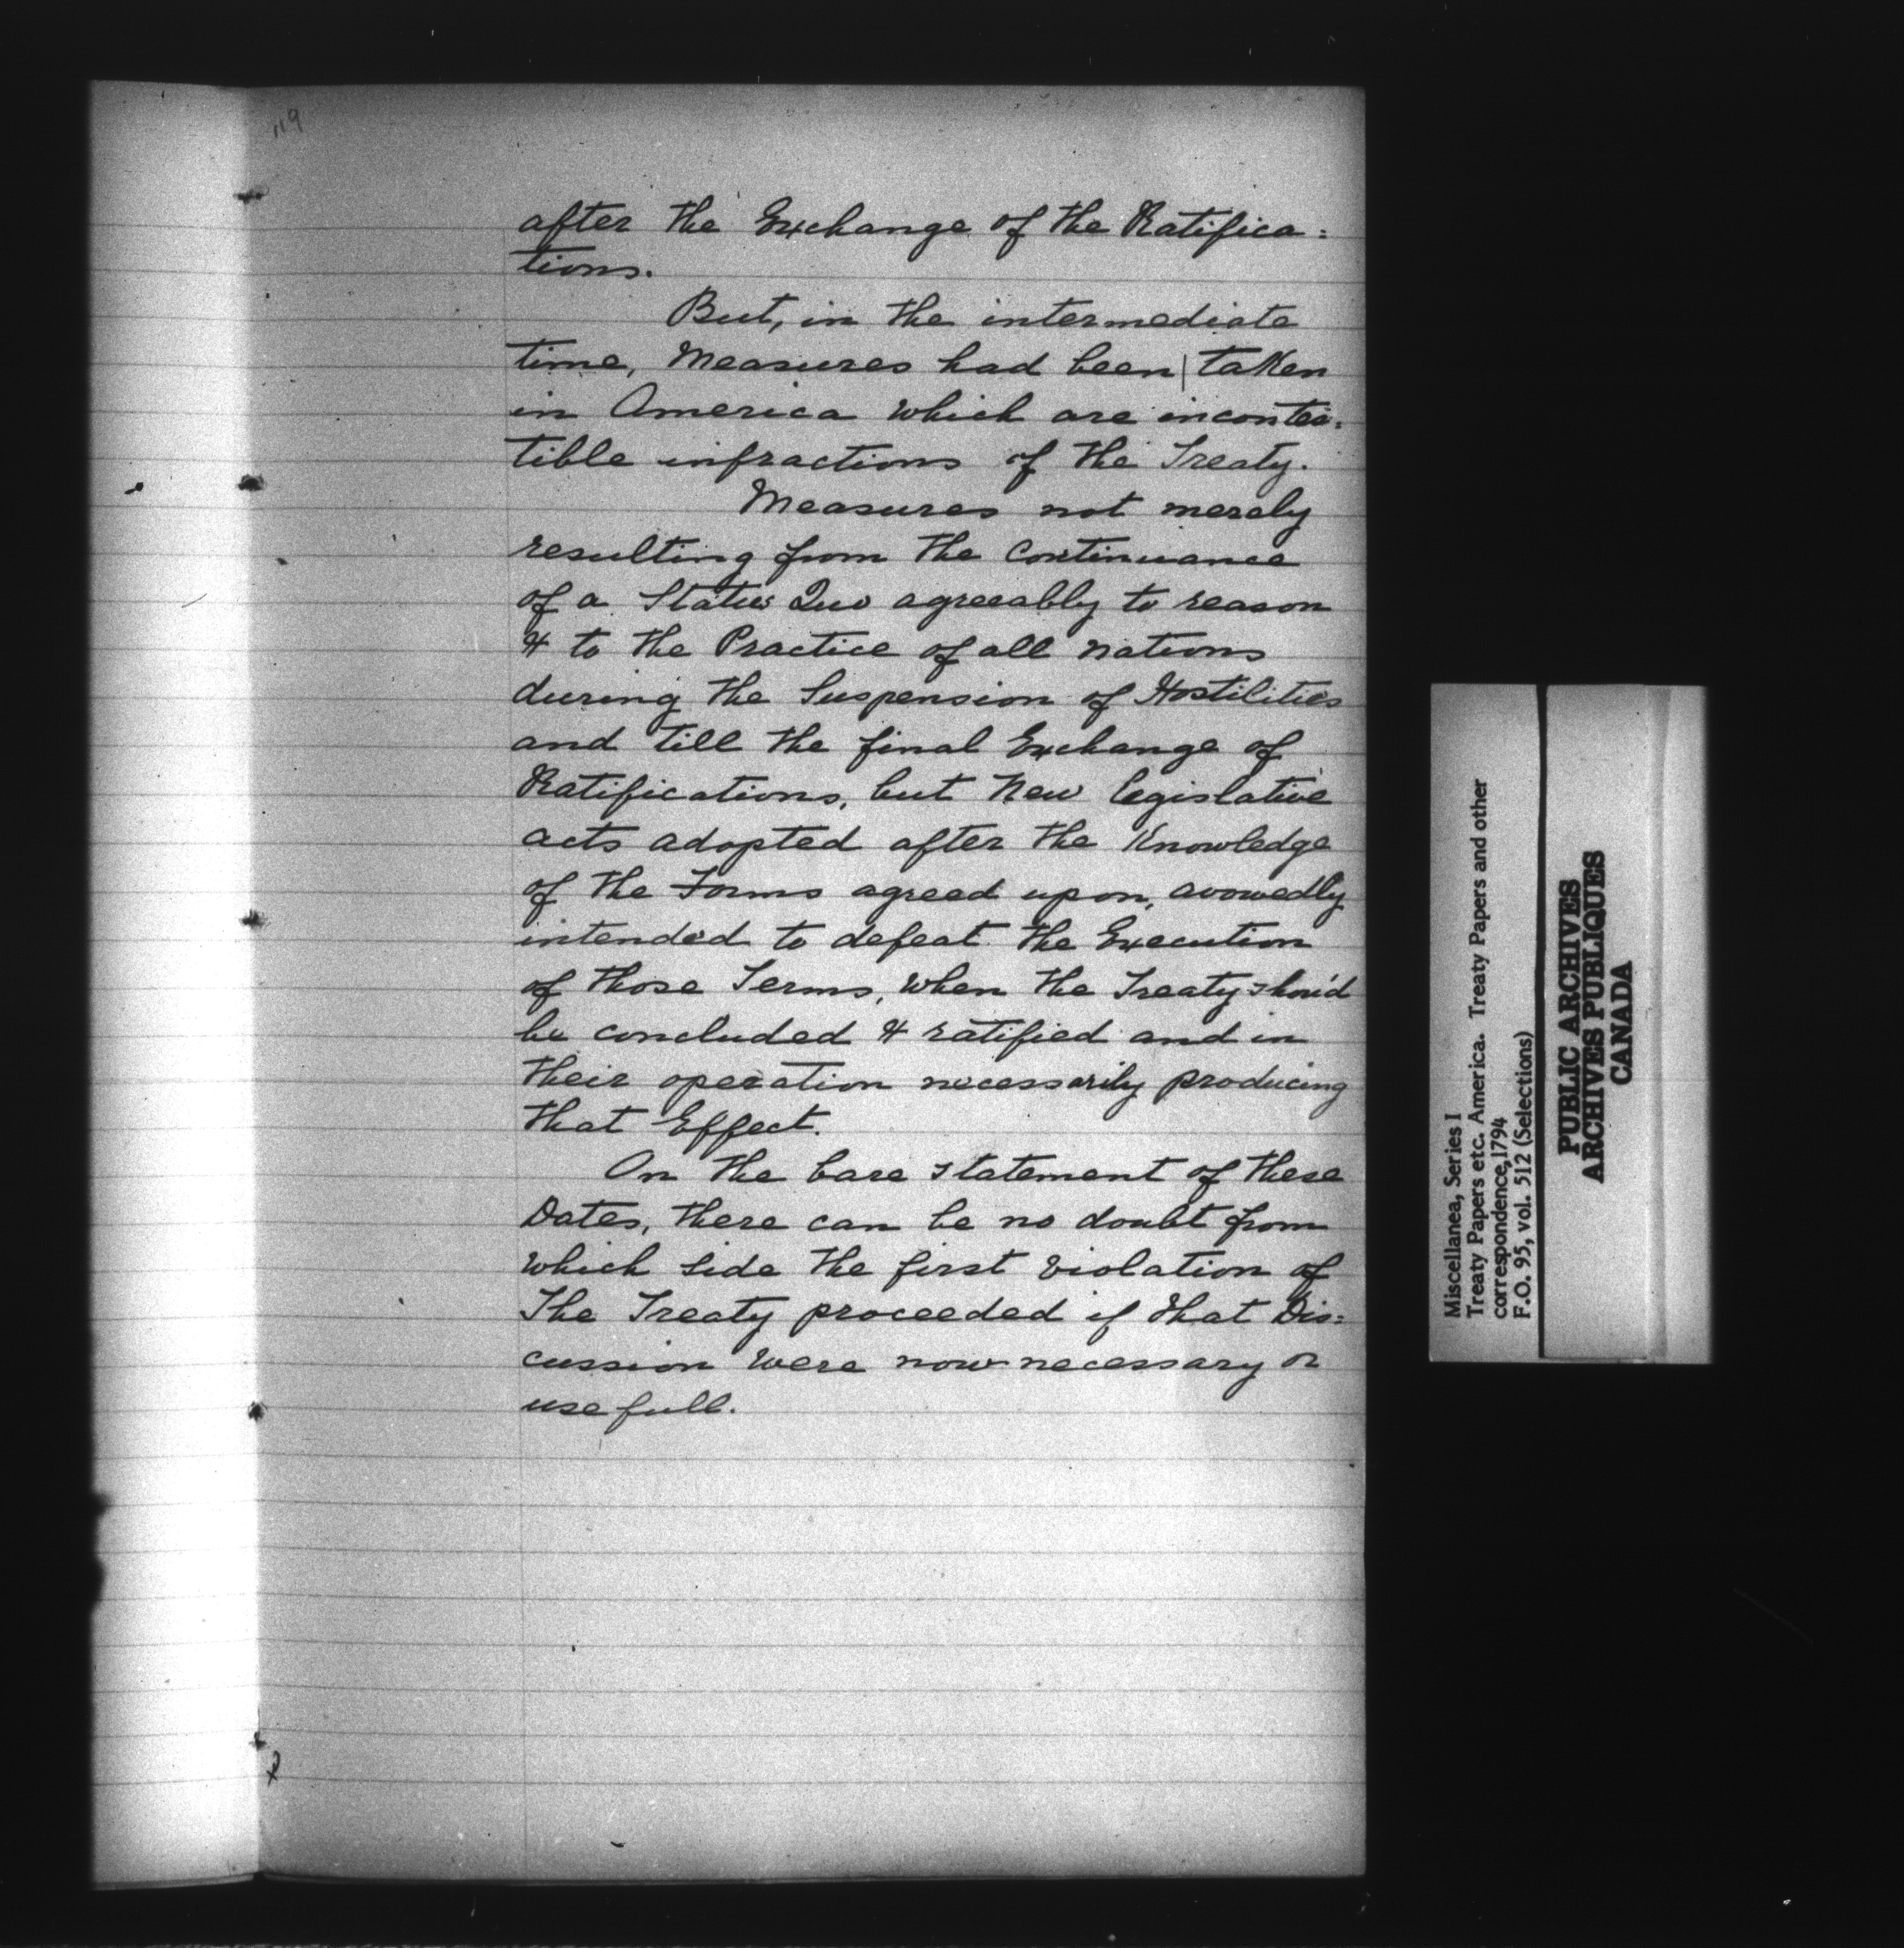 119
after the Exchange of the Ratifica=
tions.
But, in the intermediate
time, Measures had been | taken
in America which are incontes=
tible infractions of the Treaty.
Measures not merely
resulting from the Continuance
of a Status Quo agreeably to reason
& to the Practice of all nations
during the Suspension of Hostilities
and till the final Exchange of
Ratifications, but New legislative
acts adopted after the Knowledge
of the Forms agreed upon, avowedly
intended to defeat the Execution
of those Terms, when the Treaty shou'd
be concluded & ratified and in
their operation necessarily producing
that Effect.
On the bare statement of these
Dates, there can be no doubt from
which side the first violation of
The Treaty proceeded if that Dis=
cussion were now necessary or
usefull.
Miscellanea, Series I
Treaty Papers etc. America. Treaty Papers and other
correspondence, 1794
F.O. 95, vol. 512 (Selections)
PUBLIC ARCHIVES
ARCHIVES PUBLIQUES
CANADA